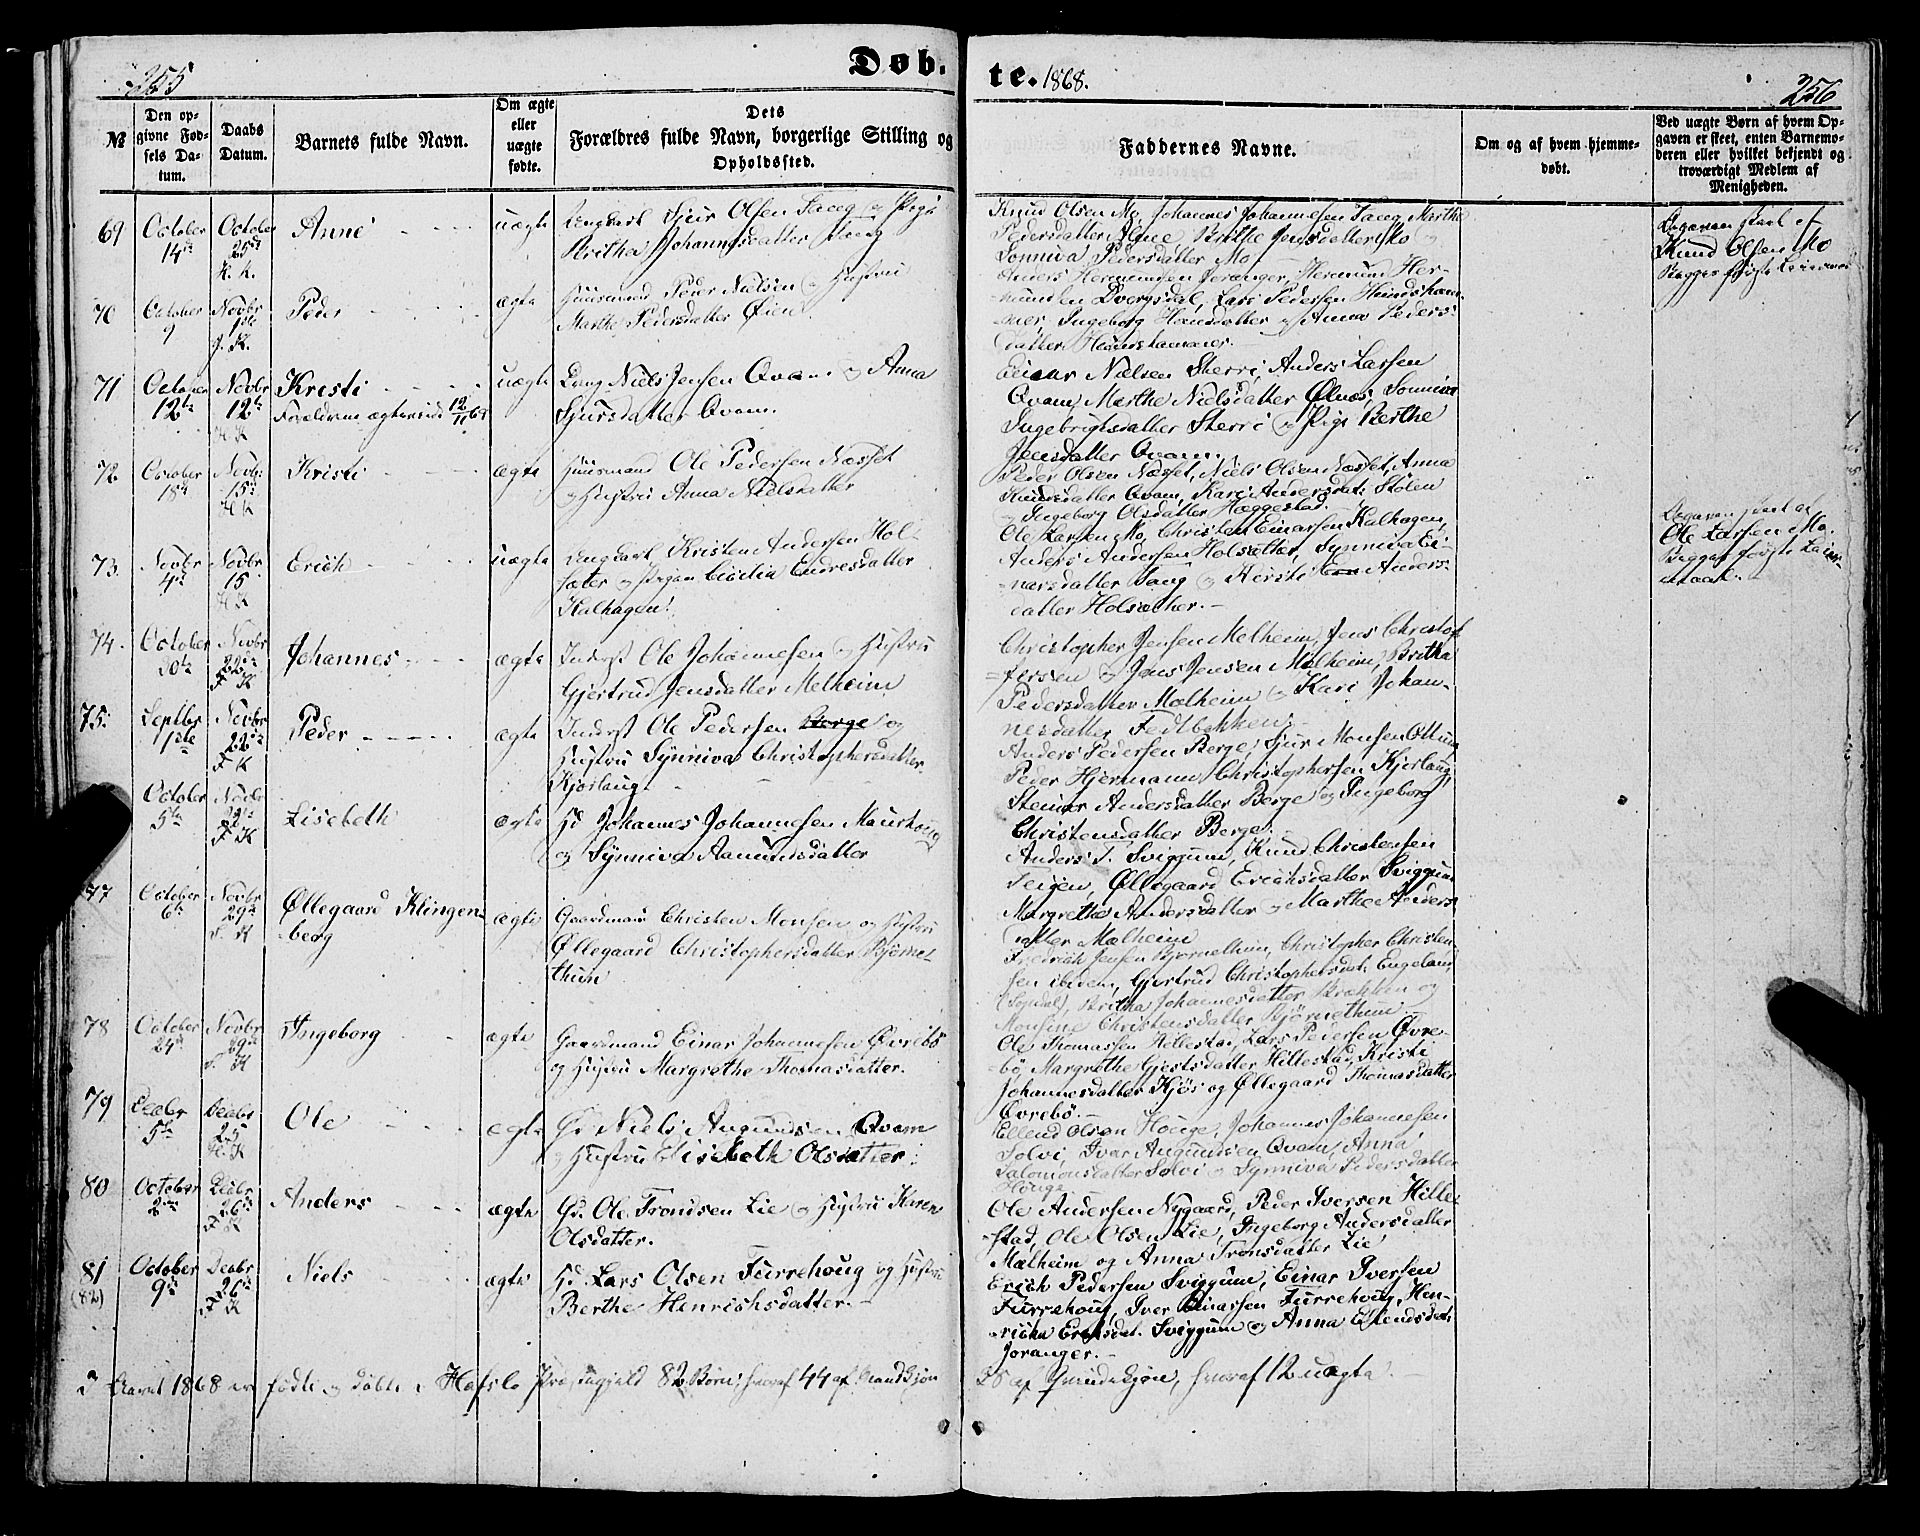 255
Døb. te. 1868.
256
№
Den op-
givne Fød-
sels Da-
tum.
Daabs
Datum.
Barnets fulde Navn.
Om ægte
eller
uægte
fødte.
Dets
Forældres fulde Navn, borgerlige Stilling og
Opholdssted.
Faddernes Navne.
Om og af hvem hjemme-
døbt.
Ved uægte Børn af hvem Op-
gaven er skeet, enten Barnemo-
deren eller hvilket bekjendt og
troværdigt Medlem af
Menigheden.
69
October
14de
October
25de
H. K.
Anne
uægte
Ungkarl Sjur Olsen og Pige
Britha Johannesdatter
Knud Olsen Mo, Johannes Johannesen Marthe
Pedersdatter Britha Jensdatter Mo og
Sonniva Pedersdatter Mo
Opgaven skeet af
Knud Olsen Mo
Begges første Leiermaal
70
October
9
Novbr
1ste
J. K.
Peder
ægte
Huusmand Peder Nielsen og Hustru
Marthe Pedersdatter Øien.
Anders Hermundsen Joranger, Hermund Her-
mundsen Dvergsdal, Lars Pedersen Hundsham-
mer, Ingeborg Hansdatter og Anna Peders-
datter Hundshammer.
71
October
12te
Novbr
12te
H K
Kristi
Forældrene ægteviede 12/11 68
uægte
Ung Niels Jensen Qvam og Anna
Sjursdatter Qvam.
Einar Nielsen Sterri, Anders Larsen
Qvam, Marthe Nielsdatter Ølnes, Sonniva
Ingebrigtsdatter Sterri og Pige Berthe
Jensdatter Qvam.
72
October
18de
Novbr
15de
H K
Kristi
ægte
Huusmand Ole Pedersen Næsset
og Hustru Anna Nielsdatter
Peder Olsen Næsset, Niels Olsen Næsset, Anna
Knudsdatter Qvam, Kari Andersdat: Stølen
og Ingeborg Olsdatter Hæggestad.
73
Novbr
4de
Novbr
15
H K
Erich
uægte
Ungkarl Kristen Andersen Hol-
sæter og Pigen Cicilia Endresdatter
Kalhagen.
Ole Larsen Mo, Christen Einarsen Kalhagen,
Anders Andersen Holsæther, Synniva Ei-
narsdatter og Kirsti Anders-
datter Holsæther.
Opgaven skeet af
Ole Larsen Mo.
Begges første Leier-
maal.
74.
October
20de
Novbr
22de
F K
Johannes
ægte
Inderst Ole Johannesen og Hustru
Gjertrud Jensdatter Melheim
Christopher Jensen Melheim, Jens Christof-
fersen og Jens Jensen Mælheim, Britha
Pedersdatter Mælheim og Kari Johan-
nesdatter Fedtbakken.
75.
Septbr
11te
Novbr
22de
F K
Peder
ægte
Inderst Ole Pedersen Berge og
Hustru Synniva Christophersdatter
Kjørlaug
Anders Pedersen Berge, Sjur Monsen Ottum
Peder Hjermann, Christophersen Kjørlaug,
Steinar Andersdatter Berge og Ingeborg
Christensdatter Berge.
October
5te
Novbr
22de
F K
Lisebeth
ægte
Hd Johannes Johannesen
og Synniva Aamundsdatter
Anders T. Sviggum, Knud Christensen
Teigen, Øllegaard Erichsdatter Sviggum
Margrethe Andersdatter og Marthe Anders-
datter Mælheim
77
October
6te
Novbr
29de
F. K
Øllegaard Klingen-
berg
ægte
Gaardmand Christen Monsen og Hustru
Øllegaard Christophersdatter Bjørne-
thun
Fredrich Jensen Bjørnethun, Christopher Christen-
sen ibidem, Gjertrud Christophersdat: Engeland
(Sogndal), Britha Johannesdatter Brækken og
Monsine Christensdatter Bjørnethun
78
October
24de
Novbr
29de
F. K
Ingeborg
ægte
Gaardmand Einar Johannesen Øvrebø
og Hustru Margrethe Thomasdatter.
Ole Thomassen Hillestad, Lars Pedersen Øvre-
bø, Margrethe Gjertsdatter Hillestad, Kristi
Johannesdatter Kjøs og Øllegaard Thomasdatter
Øvrebø.
79
Decbr
5te
Decbr
25
H. K
Ole
ægte
Gd Niels Augundsen Qvam
og Hustru Elisebeth Olsdatter.
Ellend Olsen Houge, Johannes Johannesen
Solvi, Ivar Augundsen Qvam, Anna
Salomonsdatter Solvi og Synniva Pedersdatter
Houge
80
October
2den
Decbr
26de
F. K
Anders
ægte
Gd. Ole Trondsen Lie og Hustru Karen
Olsdatter.
Ole Andersen Nygaard, Peder Iversen Hille-
stad, Ole Olsen Lie, Ingeborg Andersdatter
Mælheim og Anna Tronsdatter Lie
81
(82)
October
9de
Decbr
26de
F. K
Niels
ægte
Hd Lars Olsen Furrehoug og Hustru
Berthe Henrichsdatter.
Erich Pedersen Sviggum, Einar Iversen
Furrehoug, Iver Einarsen Furrehoug, Hen-
richa Erichsdat. Sviggum og Anna Ellendsdat:
Joranger.
I Aaret 1868 er fødte og døbte i Hafslo Præstegjeld 82 Børn, hvoraf 44 af Mandkjøn
38 af Qvindekjøn, hvoraf 12 uægte.